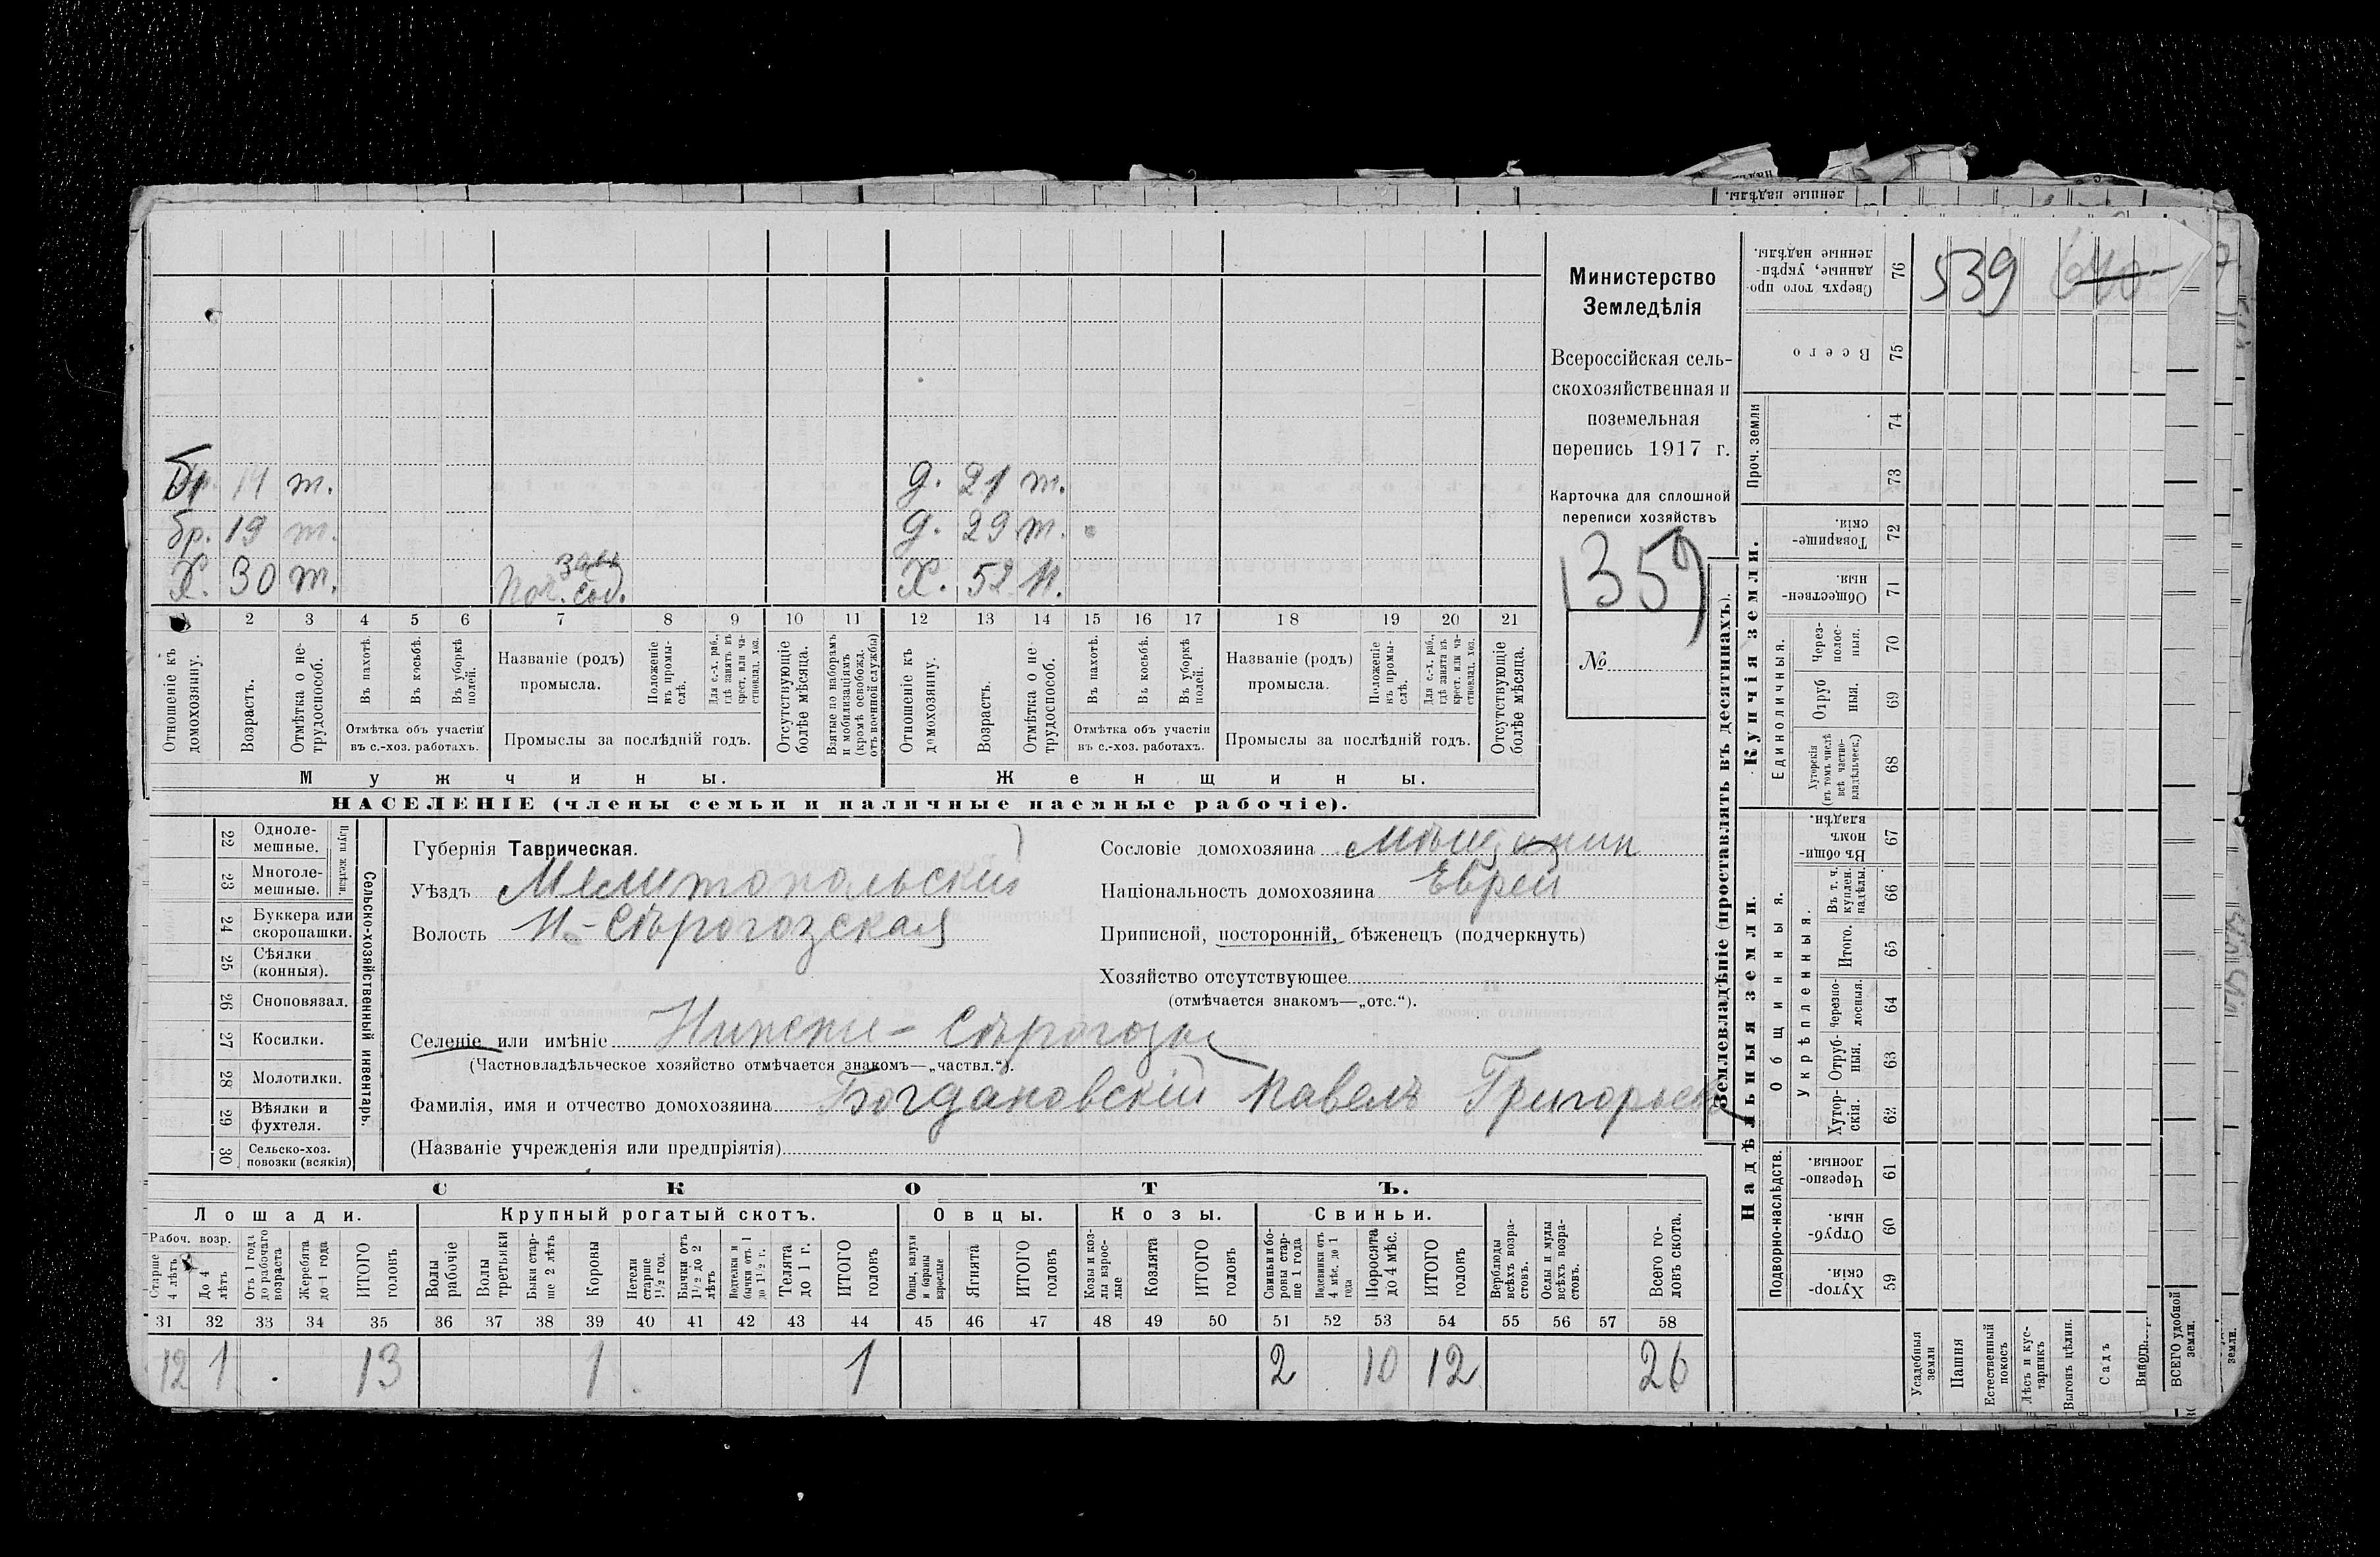 бр. 14 т. д. 21 т.
бр. 19 т. д. 29 т.
Х. 30 т. Поч. сод. Х. 52 н.
1 2 3 4 5 6 7 8 9 10 11 12 13 14 15 16 17 18 19 20 21
Отношеніе къ домохозяину.
Возрастъ.
Отмѣтка о нетрудоспособ.
Въ пахотѣ.
Въ косьбѣ.
Въ уборкѣ полей.
Отмѣтка объ участіи въ с.-хоз. работахъ.
Названіе (родъ) промысла.
Положеніе въ промыслѣ.
Для с.-х. раб., гдѣ занятъ въ крест. или частновлад. хоз.
Промыслы за послѣдній годъ.
Отсутствующіе болѣе мѣсяца.
Взятые по наборамъ и мобилизаціямъ (кромѣ освобожд. отъ военной службы)
Отношеніе къ домохозяину.
Возрастъ.
Отмѣтка о нетрудоспособ.
Въ пахотѣ.
Въ косьбѣ.
Въ уборкѣ полей.
Отмѣтка объ участіи въ с.-хоз. работахъ.
Названіе (родъ) промысла.
Положеніе въ промыслѣ.
Для с.-х. раб., гдѣ занята въ крест. или частновлад. хоз.
Промыслы за послѣдній годъ.
Отсутствующіе болѣе мѣсяца.
Мужчины. Женщины.
НАСЕЛЕНІЕ (члены семьи и наличные наемные рабочіе).
Министерство
Земледѣлія
Всероссійская сель-
скохозяйственная и
поземельная
перепись 1917 г.
Карточка для сплошной
переписи хозяйствъ
1359
№
22 Одноле-
мешные.
23 Многоле-
мешные.
Плуги желѣзн.
24 Буккера или
скоропашки.
25 Сѣялки
(конныя).
26 Сноповязал.
27 Косилки.
28 Молотилки.
29 Вѣялки и
фухтеля.
30 Сельско-хоз.
повозки (всякія)
Сельско-хозяйственный инвентарь.
Губернія Таврическая.
Уѣздъ Мелитопольскій
Волость Н.-Сѣрогозская
Сословіе домохозяина Мѣщанин
Національность домохозяина Еврей
Приписной, посторонній, бѣженецъ (подчеркнуть)
Хозяйство отсутствующее
(отмѣчается знакомъ—„отс.“).
Селеніе или имѣніе Нижніе-Сѣрогозы
(Частновладѣльческое хозяйство отмѣчается знакомъ—„частвл.“).
Фамилія, имя и отчество домохозяина Богдановскій Павелъ Григорьев
(Названіе учрежденія или предпріятія)
СКОТЪ.
Лошади. Крупный рогатый скотъ. Овцы. Козы. Свиньи.
Рабоч. возр.
Старше 4 лѣтъ
До 4 лѣтъ
Отъ 1 года до рабочаго возраста
Жеребята до 1 года
ИТОГО головъ
Волы рабочіе
Волы третьяки
Быки старше 2 лѣтъ
Коровы
Нетели старше 1½ год.
Бычки отъ 1½ до 2 лѣтъ
Подтелки и бычки отъ 1 до 1½ г.
Телята до 1 г.
ИТОГО головъ
Овцы, валухи и бараны взрослые
Ягнята
ИТОГО головъ
Козы и козлы взрослые
Козлята
ИТОГО головъ
Свиньи и боровы старше 1 года
Подсвинки отъ 4 мѣс. до 1 года
Поросята до 4 мѣс.
ИТОГО головъ
Верблюды всѣхъ возрастовъ.
Ослы и мулы всѣхъ возрастовъ.
Всего головъ скота.
31 32 33 34 35 36 37 38 39 40 41 42 43 44 45 46 47 48 49 50 51 52 53 54 55 56 57 58
12 1 13 1 1 2 10 12 26
Землевладѣніе (проставлять въ десятинахъ).
539 640
Сверхъ того проданные, укрѣпленные надѣлы. 76
Всего 75
Проч. земли 74 73
Купчія земли.
Товарищескія. 72
Общественныя. 71
Единоличныя.
Черезполосныя. 70
Отрубныя. 69
Хуторскія (въ томъ числѣ всѣ частновладѣльческ.) 68
Надѣльныя земли.
Общинныя.
Въ общинномъ владѣн. 67
Въ т. ч. куплен. надѣлы. 66
Укрѣпленныя.
Итого. 65
Черезполосныя. 64
Отрубныя. 63
Хуторскія. 62
Подворно-наслѣдств.
Черезполосныя. 61
Отрубныя. 60
Хуторскія. 59
Усадебныя земли
Пашня
Естественный покосъ
Лѣсъ и кустарникъ
Выгонъ цѣлин.
Садъ
Виногр.
ВСЕГО удобной земли.